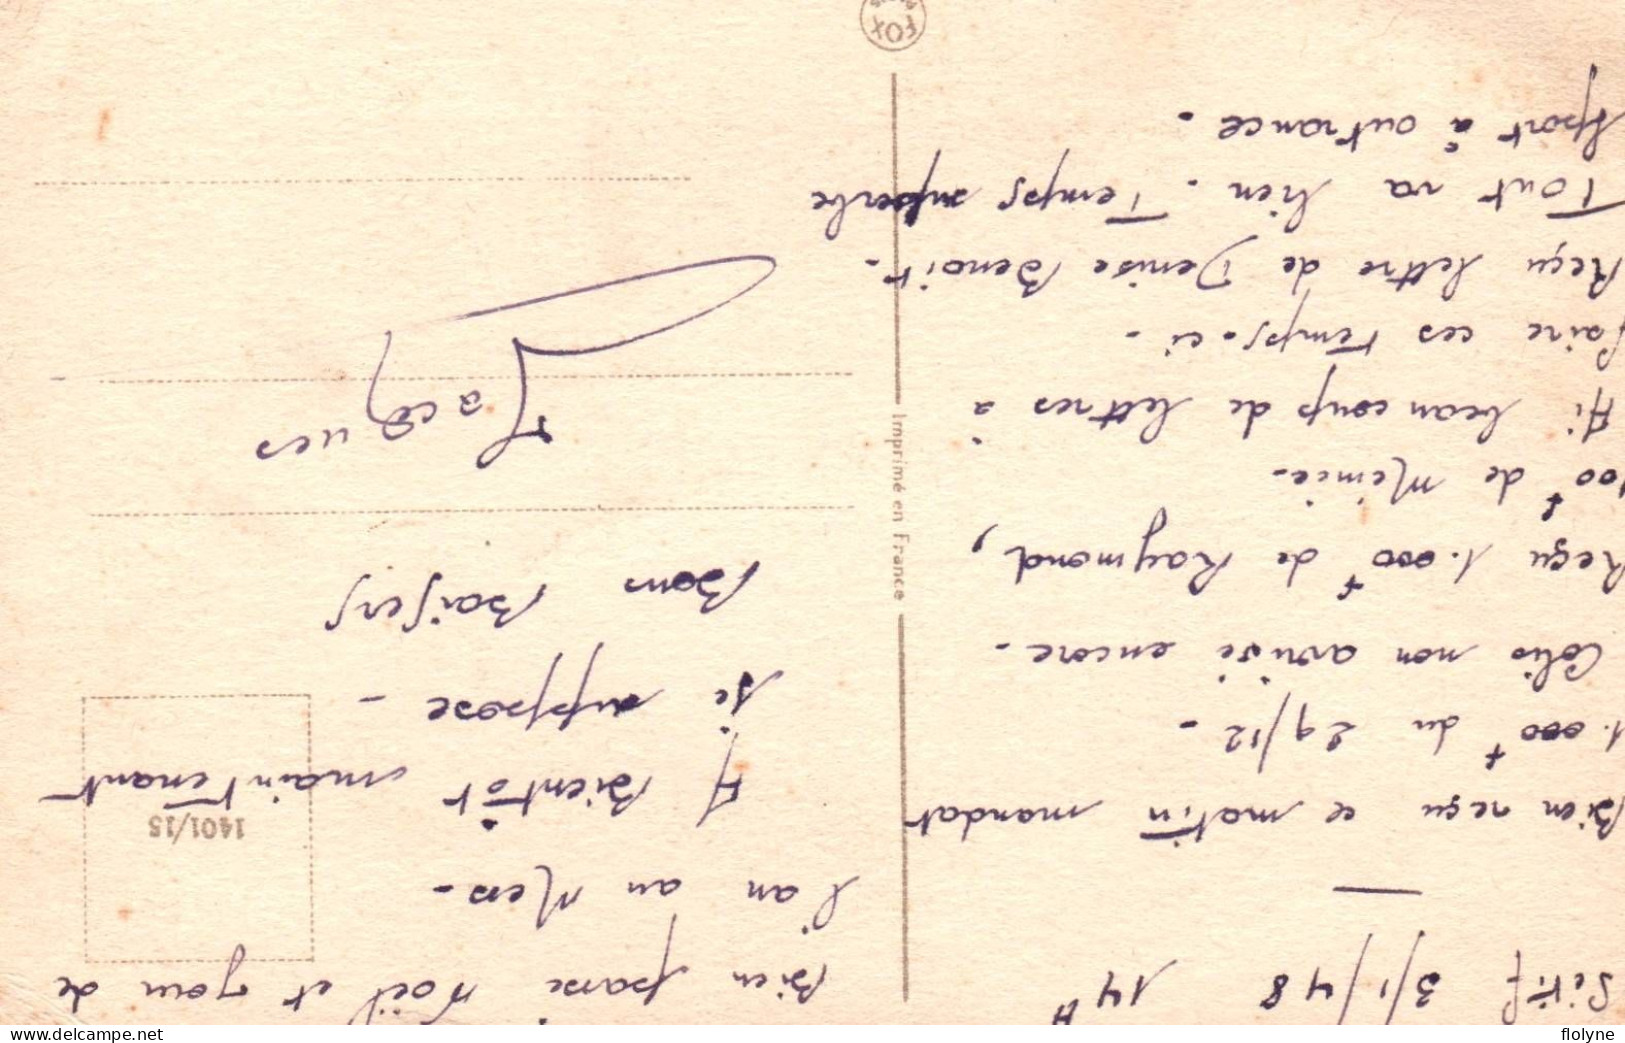 Sétif 3/1/48 14H
Bien reçu ce matin mandat
1.000f du 29/12 -
Colis non arrivé encore -
Reçu 1.000f de Raymond,
100f de Mémée -
Ai beaucoup de lettres à
faire ces temps-ci -
Reçu lettre de Denise Benoit -
Tout va bien. Temps superbe
Sport à outrance -
Bien passé Noël et Jour de
l'an au Mess -
A Bientôt maintenant
je suppose -
Bons Baisers
Jacques
1401/15
Imprimé en France
FOX
PARIS
flolyne